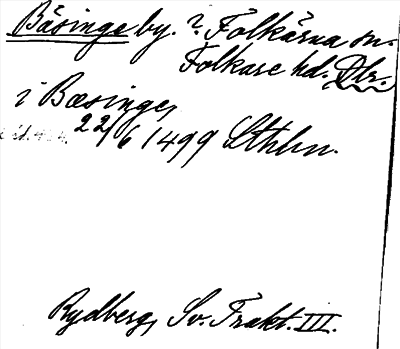 Bäsinge by. ? Folkärna sn.
Folkare hd. Dlr.
i Bæsinge,
22/6 1499 Sthlm.
Rydberg, Sv. Trakt. III.